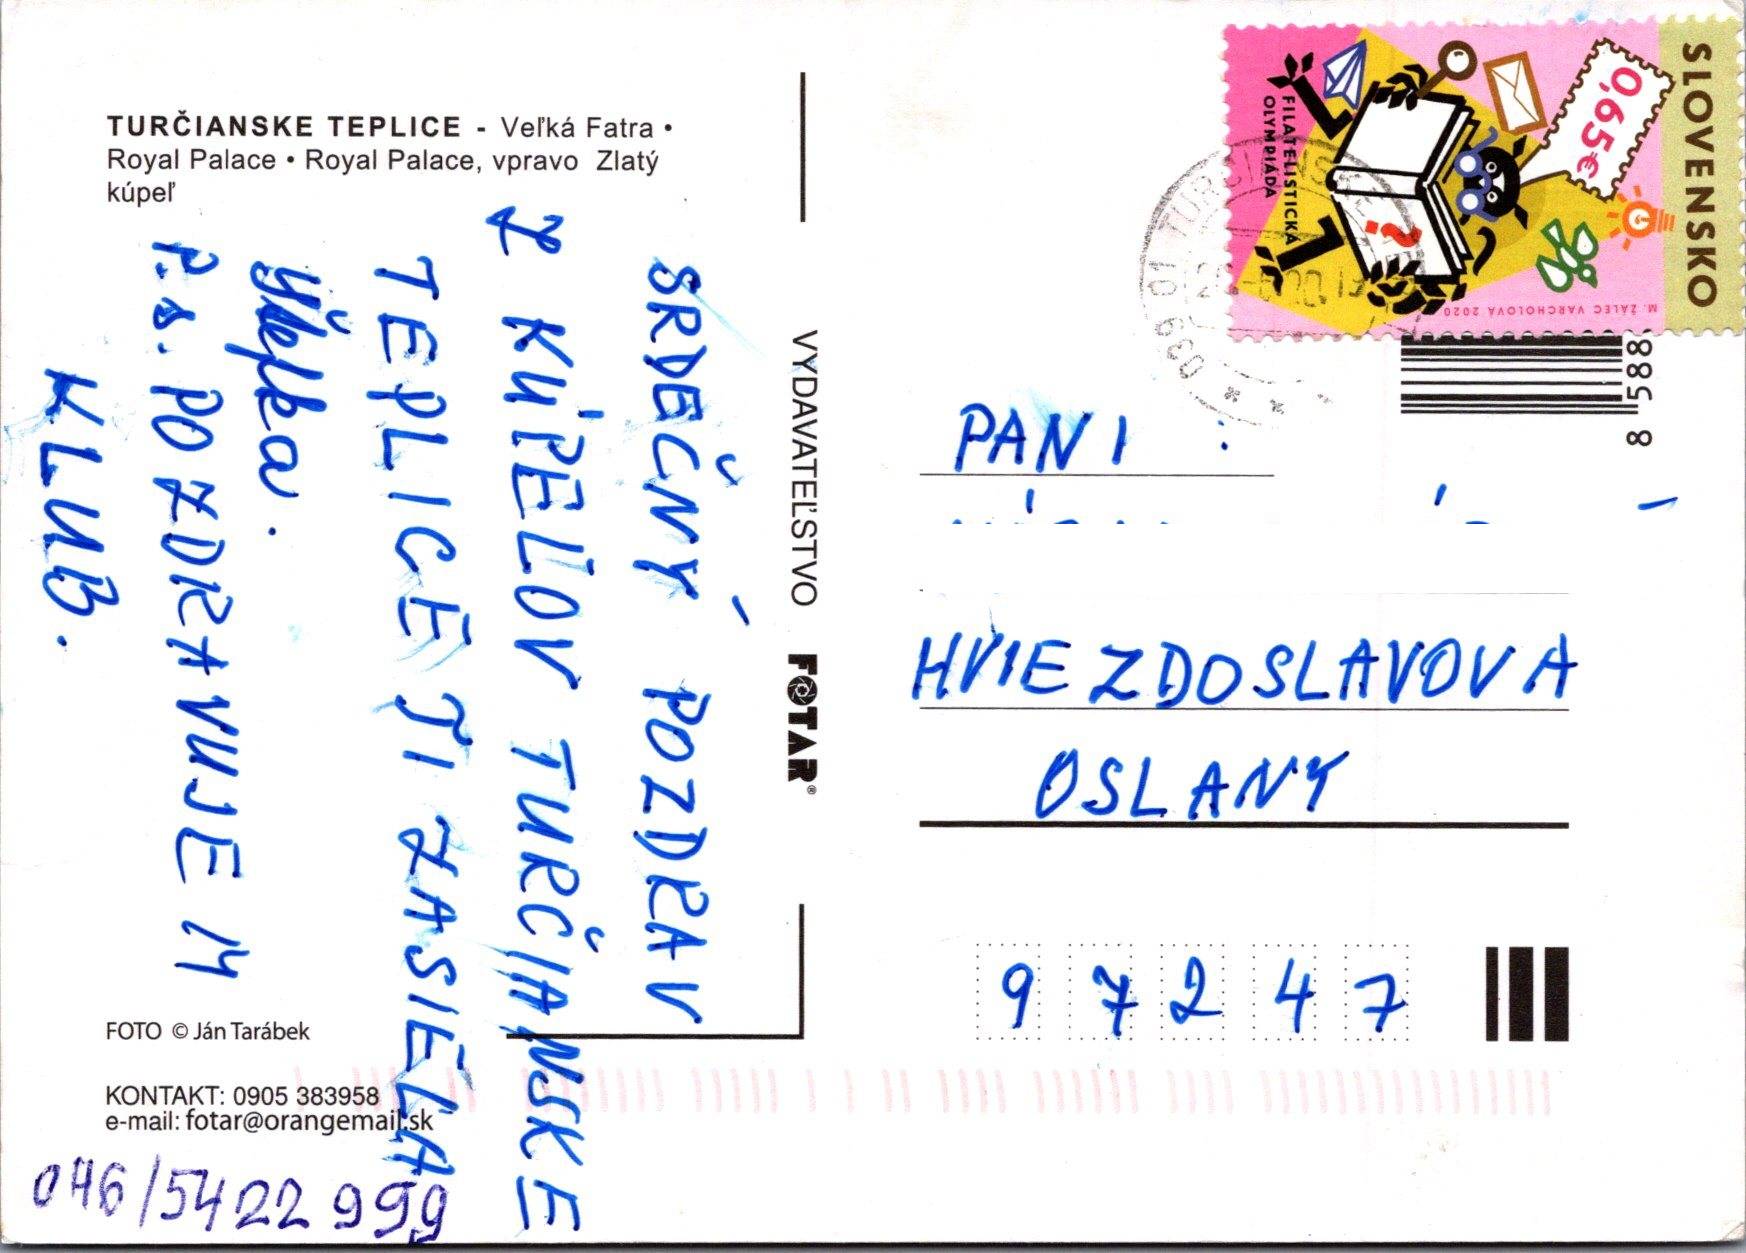 TURČIANSKE TEPLICE - Veľká Fatra •
Royal Palace • Royal Palace, vpravo Zlatý
kúpeľ
SRDEČNÝ POZDRAV
Z KÚPEĽOV TURČIANSKE
TEPLICE TI ZASIELA
P.S. POZDRAVUJE M
KLUB.
FOTO © Ján Tarábek
KONTAKT: 0905 383958
e-mail: fotar@orangemail.sk
046/5422 999
VYDAVATEĽSTVO FOTAR®
SLOVENSKO
0,65€
FILATELISTICKÁ
OLYMPIÁDA
M. ŽÁLEC VARCHOLOVÁ 2020
039 01
8 588
PANI
HVIEZDOSLAVOVA
OSLANY
97247